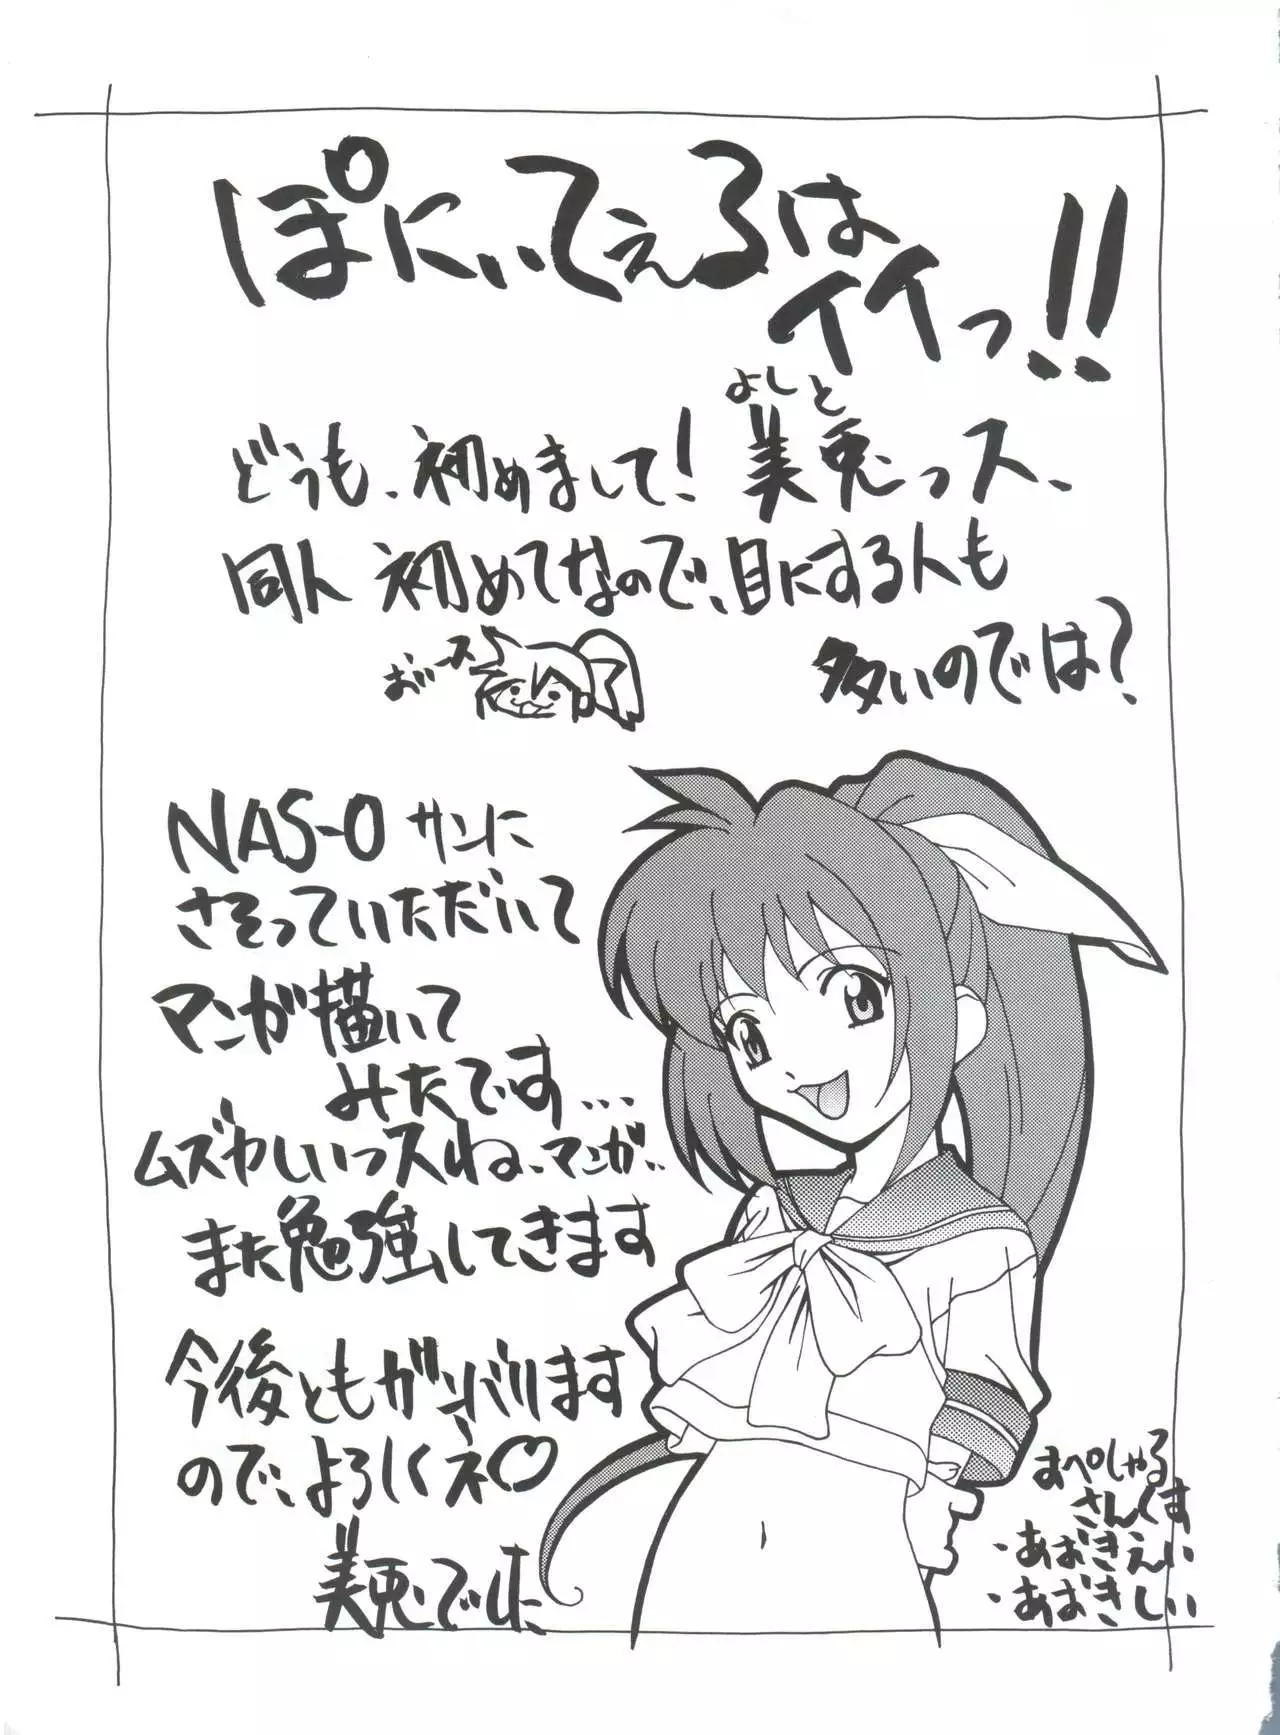 ぽにぃてぇるは
イイっ!!
よしと
どうも、初めまして!美兎っス、
同人初めてなので、目にする人も
多いのでは?
おぃース
NAS-O サンに
さそっていただいて
マンガ描いて
みたです...
ムズかしいっスね、マンガ..
また勉強してきます
今後ともガンバリます
ので、よろしくネ♡
美兎でした
すぺしゃる
さんくす
・あおきえい
・あおきしい